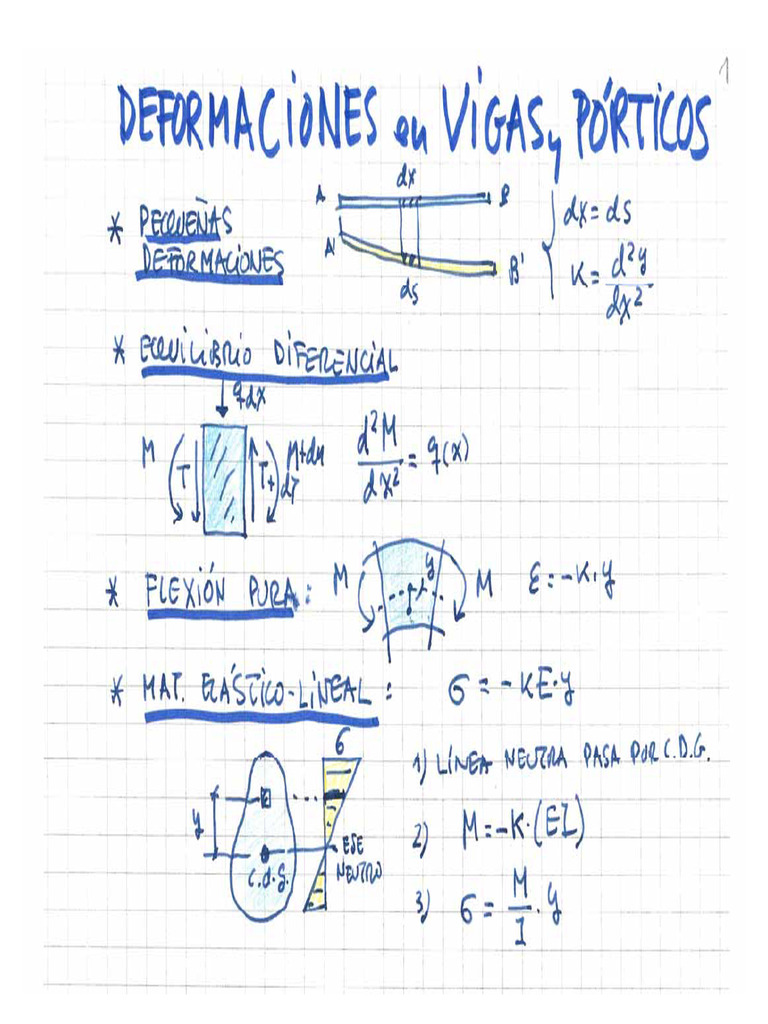 1
DEFORMACIONES en VIGAS y PÓRTICOS
* PEQUEÑAS DEFORMACIONES
A dx B
A' ds B'
dx = ds
K = d²y/dx²
* EQUILIBRIO DIFERENCIAL
qdx
M T T+dT M+dM
d²M/dx² = q(x)
* FLEXIÓN PURA: M y M ε = -K·y
* MAT. ELÁSTICO-LINEAL: σ = -KE·y
σ
y
c.d.g.
EJE NEUTRO
1) LÍNEA NEUTRA PASA POR C.D.G.
2) M = -K·(EI)
3) σ = M/I · y